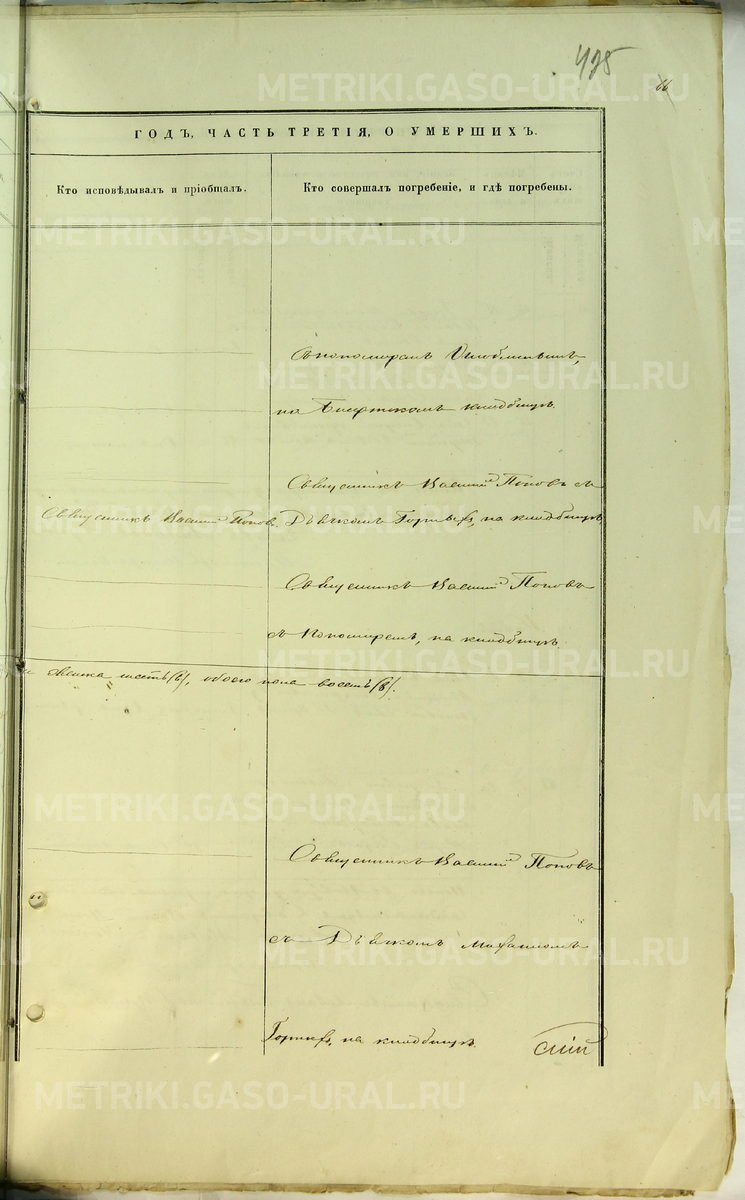 495
66
ГОДЪ, ЧАСТЬ ТРЕТІЯ, О УМЕРШИХЪ.
Кто исповѣдывалъ и пріобщалъ.
Кто совершалъ погребеніе, и гдѣ погребены.
съ пономаремъ
на кладбищѣ.
Священникъ Василій Поповъ съ
Священникъ Василій Поповъ.
Дьячкомъ на кладбищѣ
Священникъ Василій Поповъ
съ Пономаремъ, на кладбищѣ.
Женска шесть (6), обоего пола восемь (8).
Священникъ Василій Поповъ
съ Дьячкомъ
на кладбищѣ.
скій
METRIKI.GASO-URAL.RU